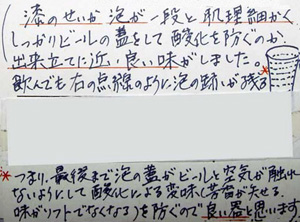 漆のせいか泡が一段と肌理細かく
しっかりビールの蓋をして酸化を防ぐのか、
出来立てに近い良い味がしました。*
飲んでも右の点線のように泡の跡が残る
* つまり、最後まで泡の蓋がビールと空気が触れ
ないようにして酸化による変味(苦昔が失せる.
味がソフトでなくなる)を防ぐので良い器と思います